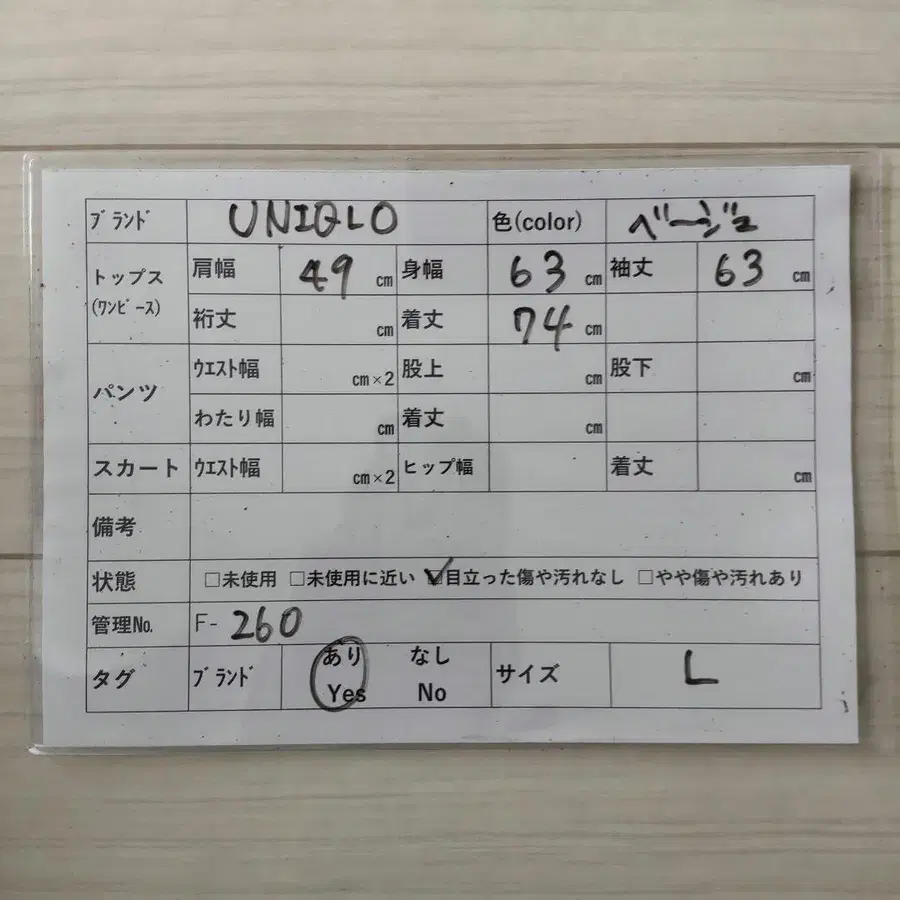 ブランド UNIQLO 色(color) ベージュ
トップス(ワンピース) 肩幅 49 cm 身幅 63 cm 袖丈 63 cm
裄丈 cm 着丈 74 cm
パンツ ウエスト幅 cm×2 股上 cm 股下 cm
わたり幅 cm 着丈 cm
スカート ウエスト幅 cm×2 ヒップ幅 着丈 cm
備考
状態 □未使用 □未使用に近い ☑目立った傷や汚れなし □やや傷や汚れあり
管理No. F- 260
タグ ブランド あり Yes なし No サイズ L